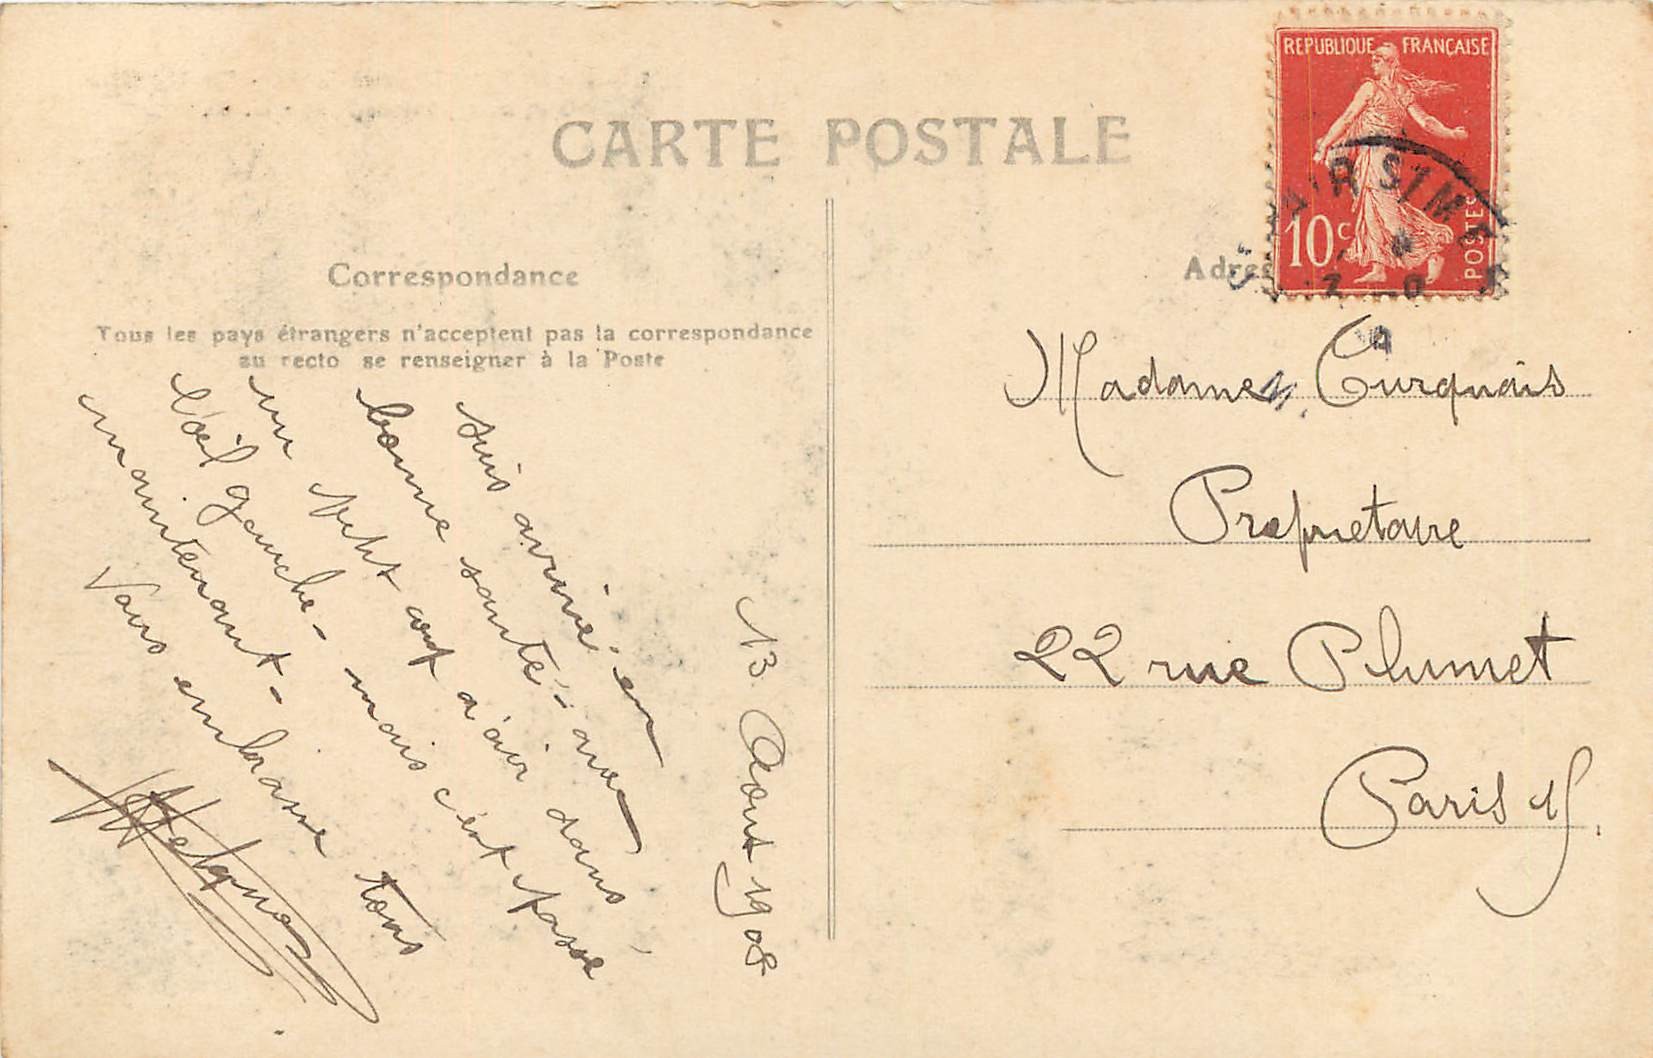 CARTE POSTALE
REPUBLIQUE FRANÇAISE
10c
POSTES
Correspondance
Tous les pays étrangers n'acceptent pas la correspondance
au recto se renseigner à la Poste
13 Aout 1908
suis arrivé en
bonne santé - avec
un petit coup d'air dans
l'œil gauche - mais c'est passé
maintenant -
Vous embrasse tous
Adres
Madame Turquais
Propriétaire
22 rue Plumet
Paris 15